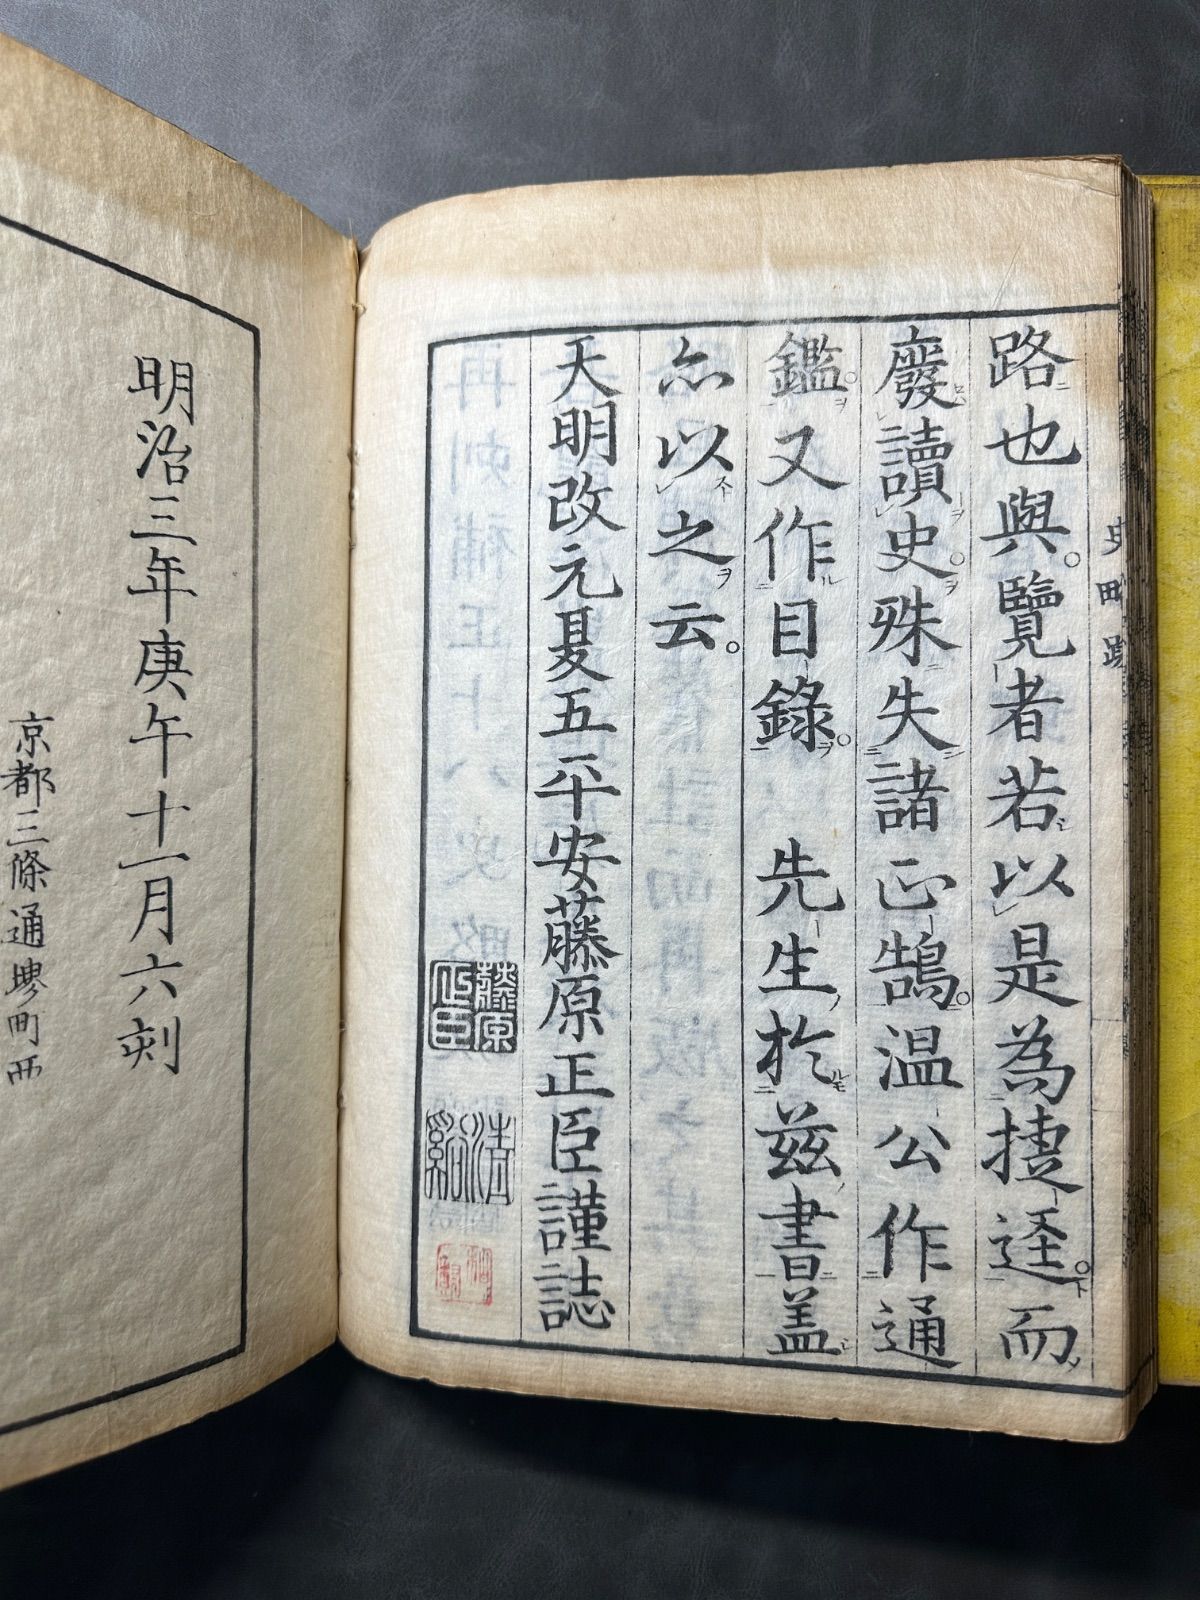 路也與。覽者若以是為捷逕。而
廢讀史。殊失諸正鵠。温公作通
鑑。又作目錄。 先生於茲書蓋
亦以之云。
天明改元夏五平安藤原正臣謹誌
藤原
正臣
清
谿
史略跋
明治三年庚午十一月六刻
京都三條通堺町西